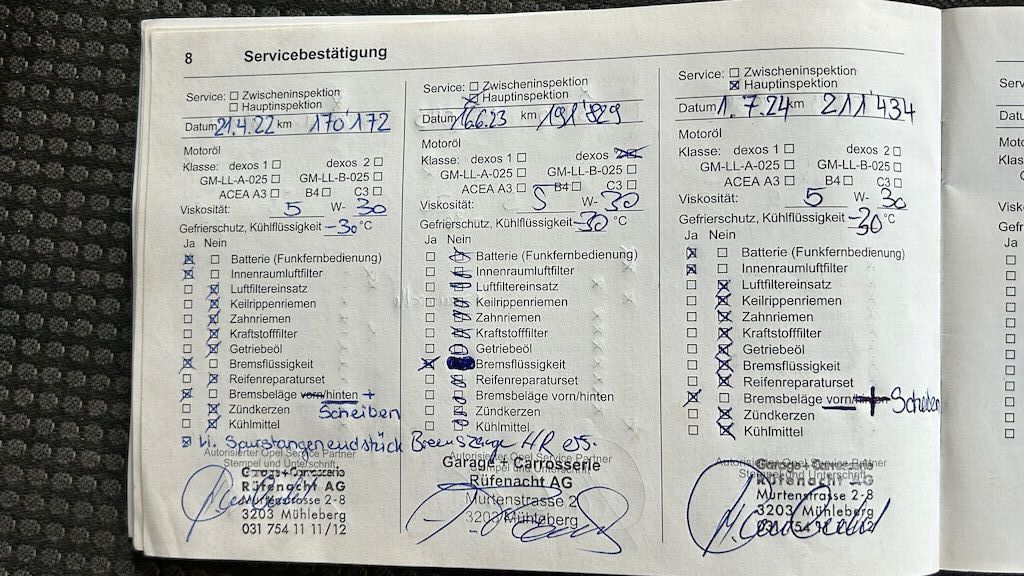 8 Servicebestätigung
Service: Zwischeninspektion
Hauptinspektion
Datum 21.4.22 km 170'172
Motoröl
Klasse: dexos 1 dexos 2
GM-LL-A-025 GM-LL-B-025
ACEA A3 B4 C3
Viskosität: 5 W- 30
Gefrierschutz, Kühlflüssigkeit -30 °C
Ja Nein
Batterie (Funkfernbedienung)
Innenraumluftfilter
Luftfiltereinsatz
Keilrippenriemen
Zahnriemen
Kraftstofffilter
Getriebeöl
Bremsflüssigkeit
Reifenreparaturset
Bremsbeläge vorn/hinten +
Scheiben
Zündkerzen
Kühlmittel
Spurstangenendstück
Autorisierter Opel Service Partner
Stempel und Unterschrift
Garage + Carrosserie
Rüfenacht AG
Murtenstrasse 2-8
3203 Mühleberg
031 754 11 11/12
Service: Zwischeninspektion
Hauptinspektion
Datum 16.6.23 km 191'829
Motoröl
Klasse: dexos 1 dexos 2
GM-LL-A-025 GM-LL-B-025
ACEA A3 B4 C3
Viskosität: 5 W- 30
Gefrierschutz, Kühlflüssigkeit -30 °C
Ja Nein
Batterie (Funkfernbedienung)
Innenraumluftfilter
Luftfiltereinsatz
Keilrippenriemen
Zahnriemen
Kraftstofffilter
Getriebeöl
Bremsflüssigkeit
Reifenreparaturset
Bremsbeläge vorn/hinten
Zündkerzen
Kühlmittel
Bremszange HR ers.
Autorisierter Opel Service Partner
Garage + Carrosserie
Rüfenacht AG
Murtenstrasse 2
3203 Mühleberg
Service: Zwischeninspektion
Hauptinspektion
Datum 1.7.24 km 211'434
Motoröl
Klasse: dexos 1 dexos 2
GM-LL-A-025 GM-LL-B-025
ACEA A3 B4 C3
Viskosität: 5 W- 30
Gefrierschutz, Kühlflüssigkeit -30 °C
Ja Nein
Batterie (Funkfernbedienung)
Innenraumluftfilter
Luftfiltereinsatz
Keilrippenriemen
Zahnriemen
Kraftstofffilter
Getriebeöl
Bremsflüssigkeit
Reifenreparaturset
Bremsbeläge vorn/hinten + Scheiben
Zündkerzen
Kühlmittel
Autorisierter Opel Service Partner
Stempel und Unterschrift
Garage + Carrosserie
Rüfenacht AG
Murtenstrasse 2-8
3203 Mühleberg
031 754 11 11/12